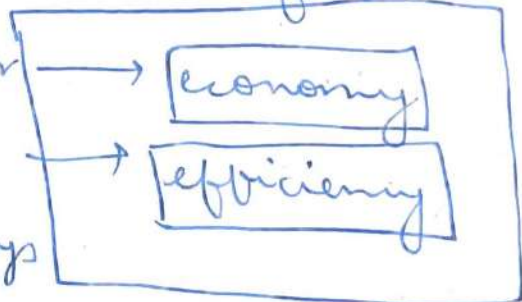 economy
efficiency